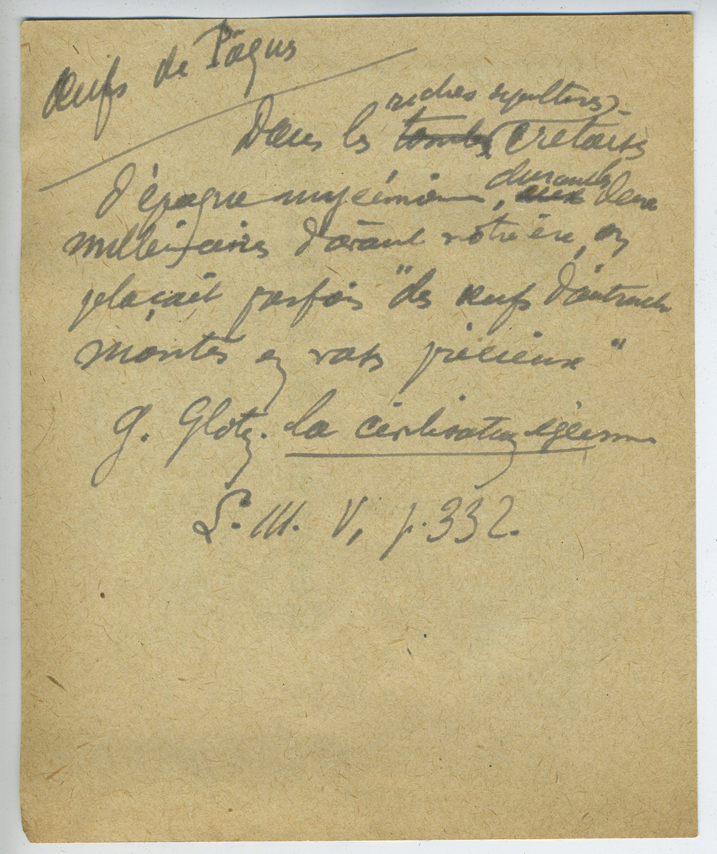 Œufs de Pâques
riches sépultures
Dans les tombes crétoises
d'époque mycénienne, durant les deux
millénaires d'avant notre ère, on
plaçait parfois "des œufs d'autruche
montés en vases précieux"
G. Glotz. La civilisation égéenne
L. III. V, p. 332.